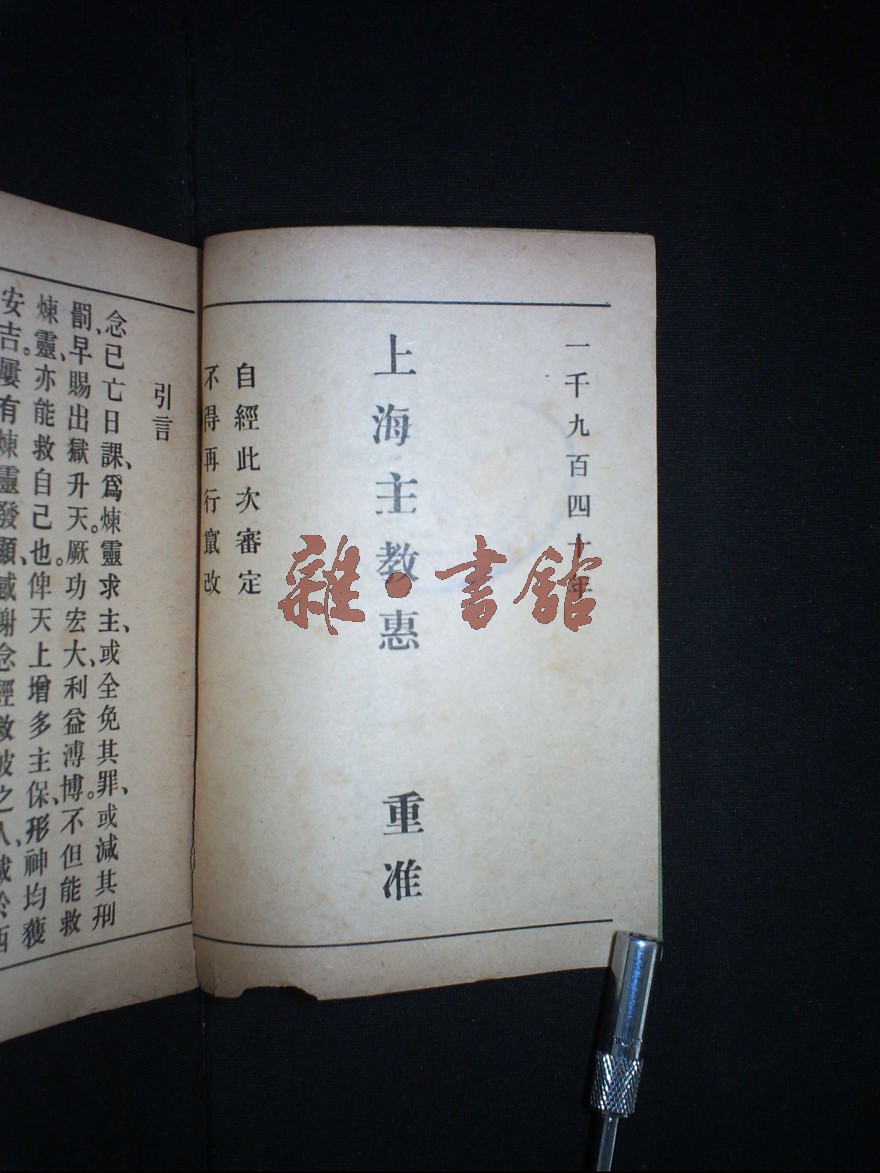 一千九百四十年
上海主教惠 重准
自經此次審定
不得再行竄改
引言
念已亡日課、爲煉靈求主、或全免其罪、或減其刑
罰、早賜出獄升天。厥功宏大、利益溥博。不但能救
煉靈、亦能救自己也。俾天上增多主保、形神均獲
安吉。屢有煉靈發顯、感謝念經救彼之人、或於西
雜·書館